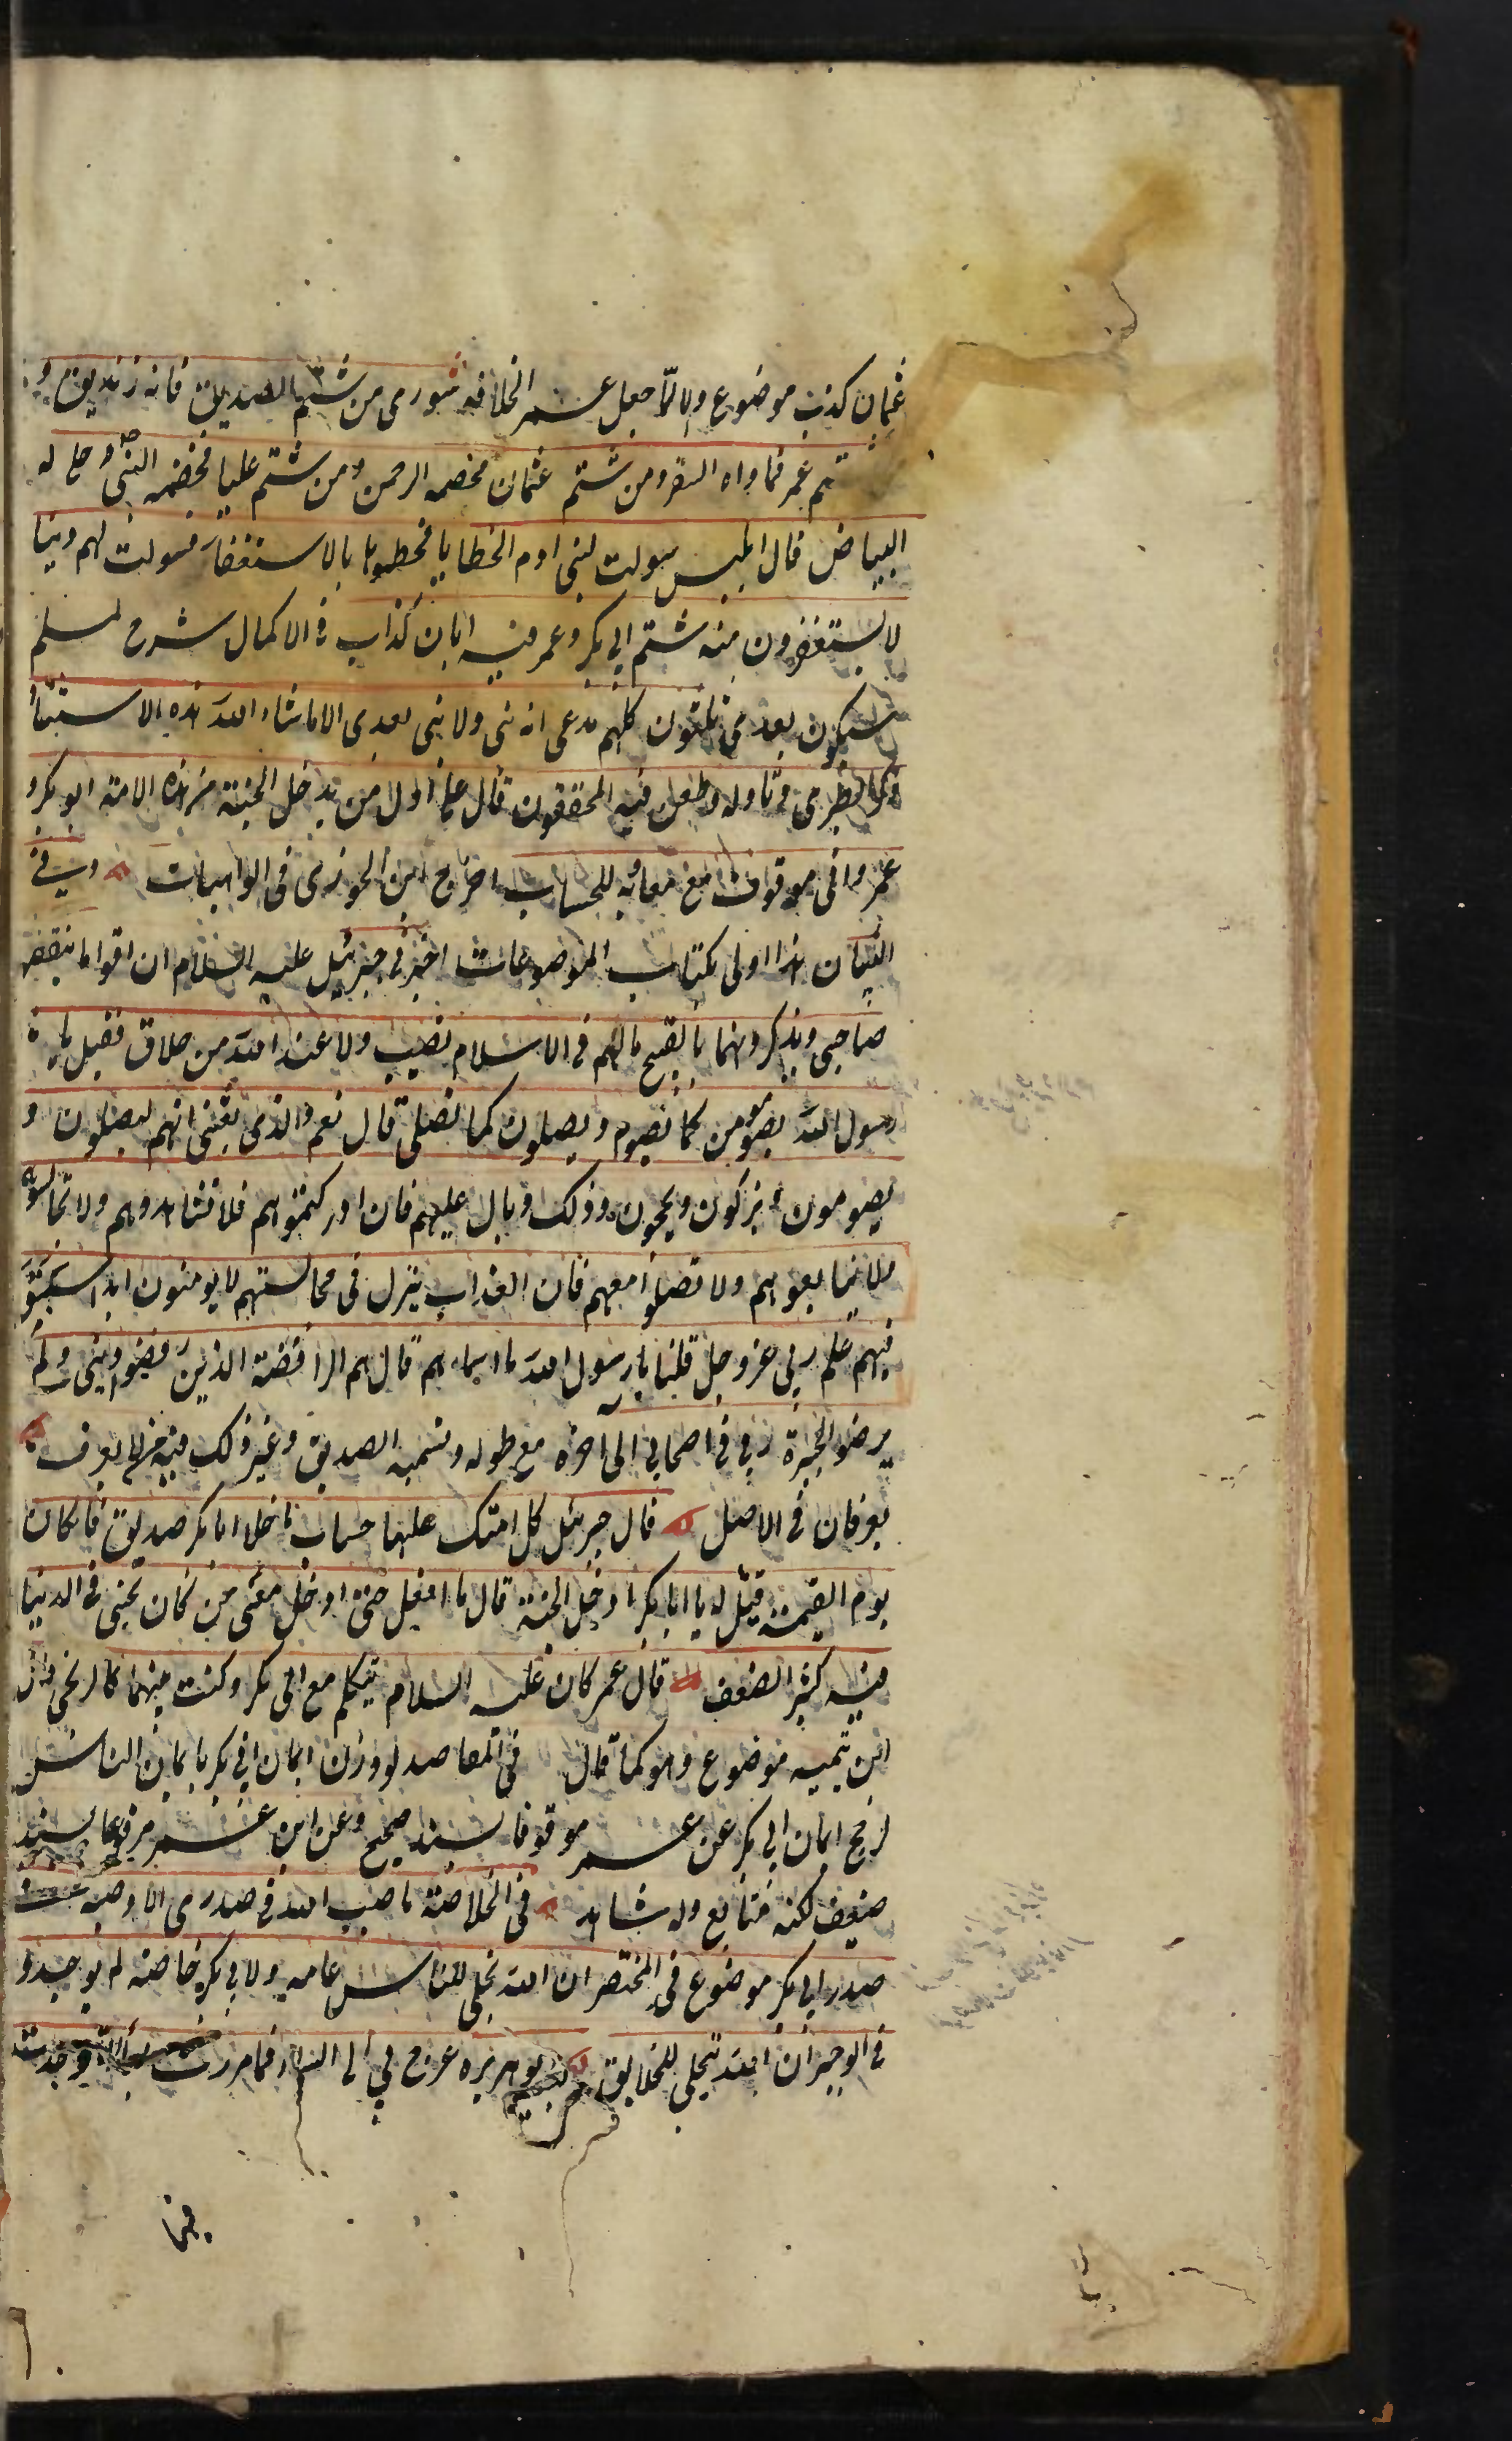 عثمان كذب موضوع والا لما جعل عمر الخلافة شورى من شتم الصديق فانه زنديق و
شتم عمر فماواه السقر ومن شتم عثمان فخصمه الرحمن ومن شتم عليا فخصمه النبي وضاع له
البياض قال ابليس سولت لبني ادم الخطايا فحطموها بالاستغفار فسولت لهم دينا
لا يستغفرون منه شتم ابي بكر وعمر فيه ابان كذاب في الاكمال شرح لمسلم
سيكون بعدي ثلثون كلهم يدعى انه نبي ولا نبي بعدي الا ماشاء الله هذه الاستثناء
الطبري وتاوله وطعن فيه المحققون قال علي اول من يدخل الجنة من هذه الامة ابو بكر و
عمر واني موقوف مع معاوية للحساب اخرج ابن الجوزي في الواهيات وفي
اللسان هذا اولى بكتاب الموضوعات اخبرني جبرئيل عليه السلام ان اقواما ينقصو
صاحبي ويذكرونهما بالقبح مالهم في الاسلام نصيب ولا عند الله من خلاق فقيل يا
رسول الله يصومون كما نصوم ويصلون كما نصلي قال نعم والذي بعثني انهم ليصلون و
يصومون ويزكون ويحجون وذلك وبال عليهم فان ادركتموهم فلا تشاهدوهم ولا تجالسوهم
ولا تبايعوهم ولا تصلوا معهم فان العذاب ينزل في مجالستهم لا يومنون ابدا سبق
فيهم علم ربي عز وجل قلنا يا رسول الله ما اسماءهم قال هم الرافضة الذين رفضوا ديني ولم
يرضو الخيرة ربي في اصحابي الى اخره مع طوله وتسمية الصديق وغير ذلك فيه من لم يعرف
يعرفان في الاصل قال جبرئل كل امتك عليها حساب ماخلا ابا بكر صديق فاذا كان
يوم القيمة قيل له يا ابا بكر ادخل الجنة قال ما افعل حتى ادخل معي من كان يحبني في الدنيا
فيه كثير الضعف قال عمر كان عليه السلام يتكلم مع ابي بكر وكنت بينهما كالزنجي قال
ابن تيميه موضوع وهو كما قال في المقاصد لو وزن ايمان ابي بكر بايمان الناس
لرجح ايمان ابي بكر عن عمر موقوفا بسند صحيح وعن ابن عمر مرفوعا بسند
ضعيف لكنه متابع وله شاهد في الخلاصة ما صب الله في صدري الا وصببت
صدر ابي بكر موضوع في المختصر ان الله تجلى للناس عامة ولابي بكر خاصة لم يوجد و
في الوجيز ان الله يتجلى للخلايق ابو هريره عرج بي الى السماء فما مررت بسماء الا وجدت
فيها